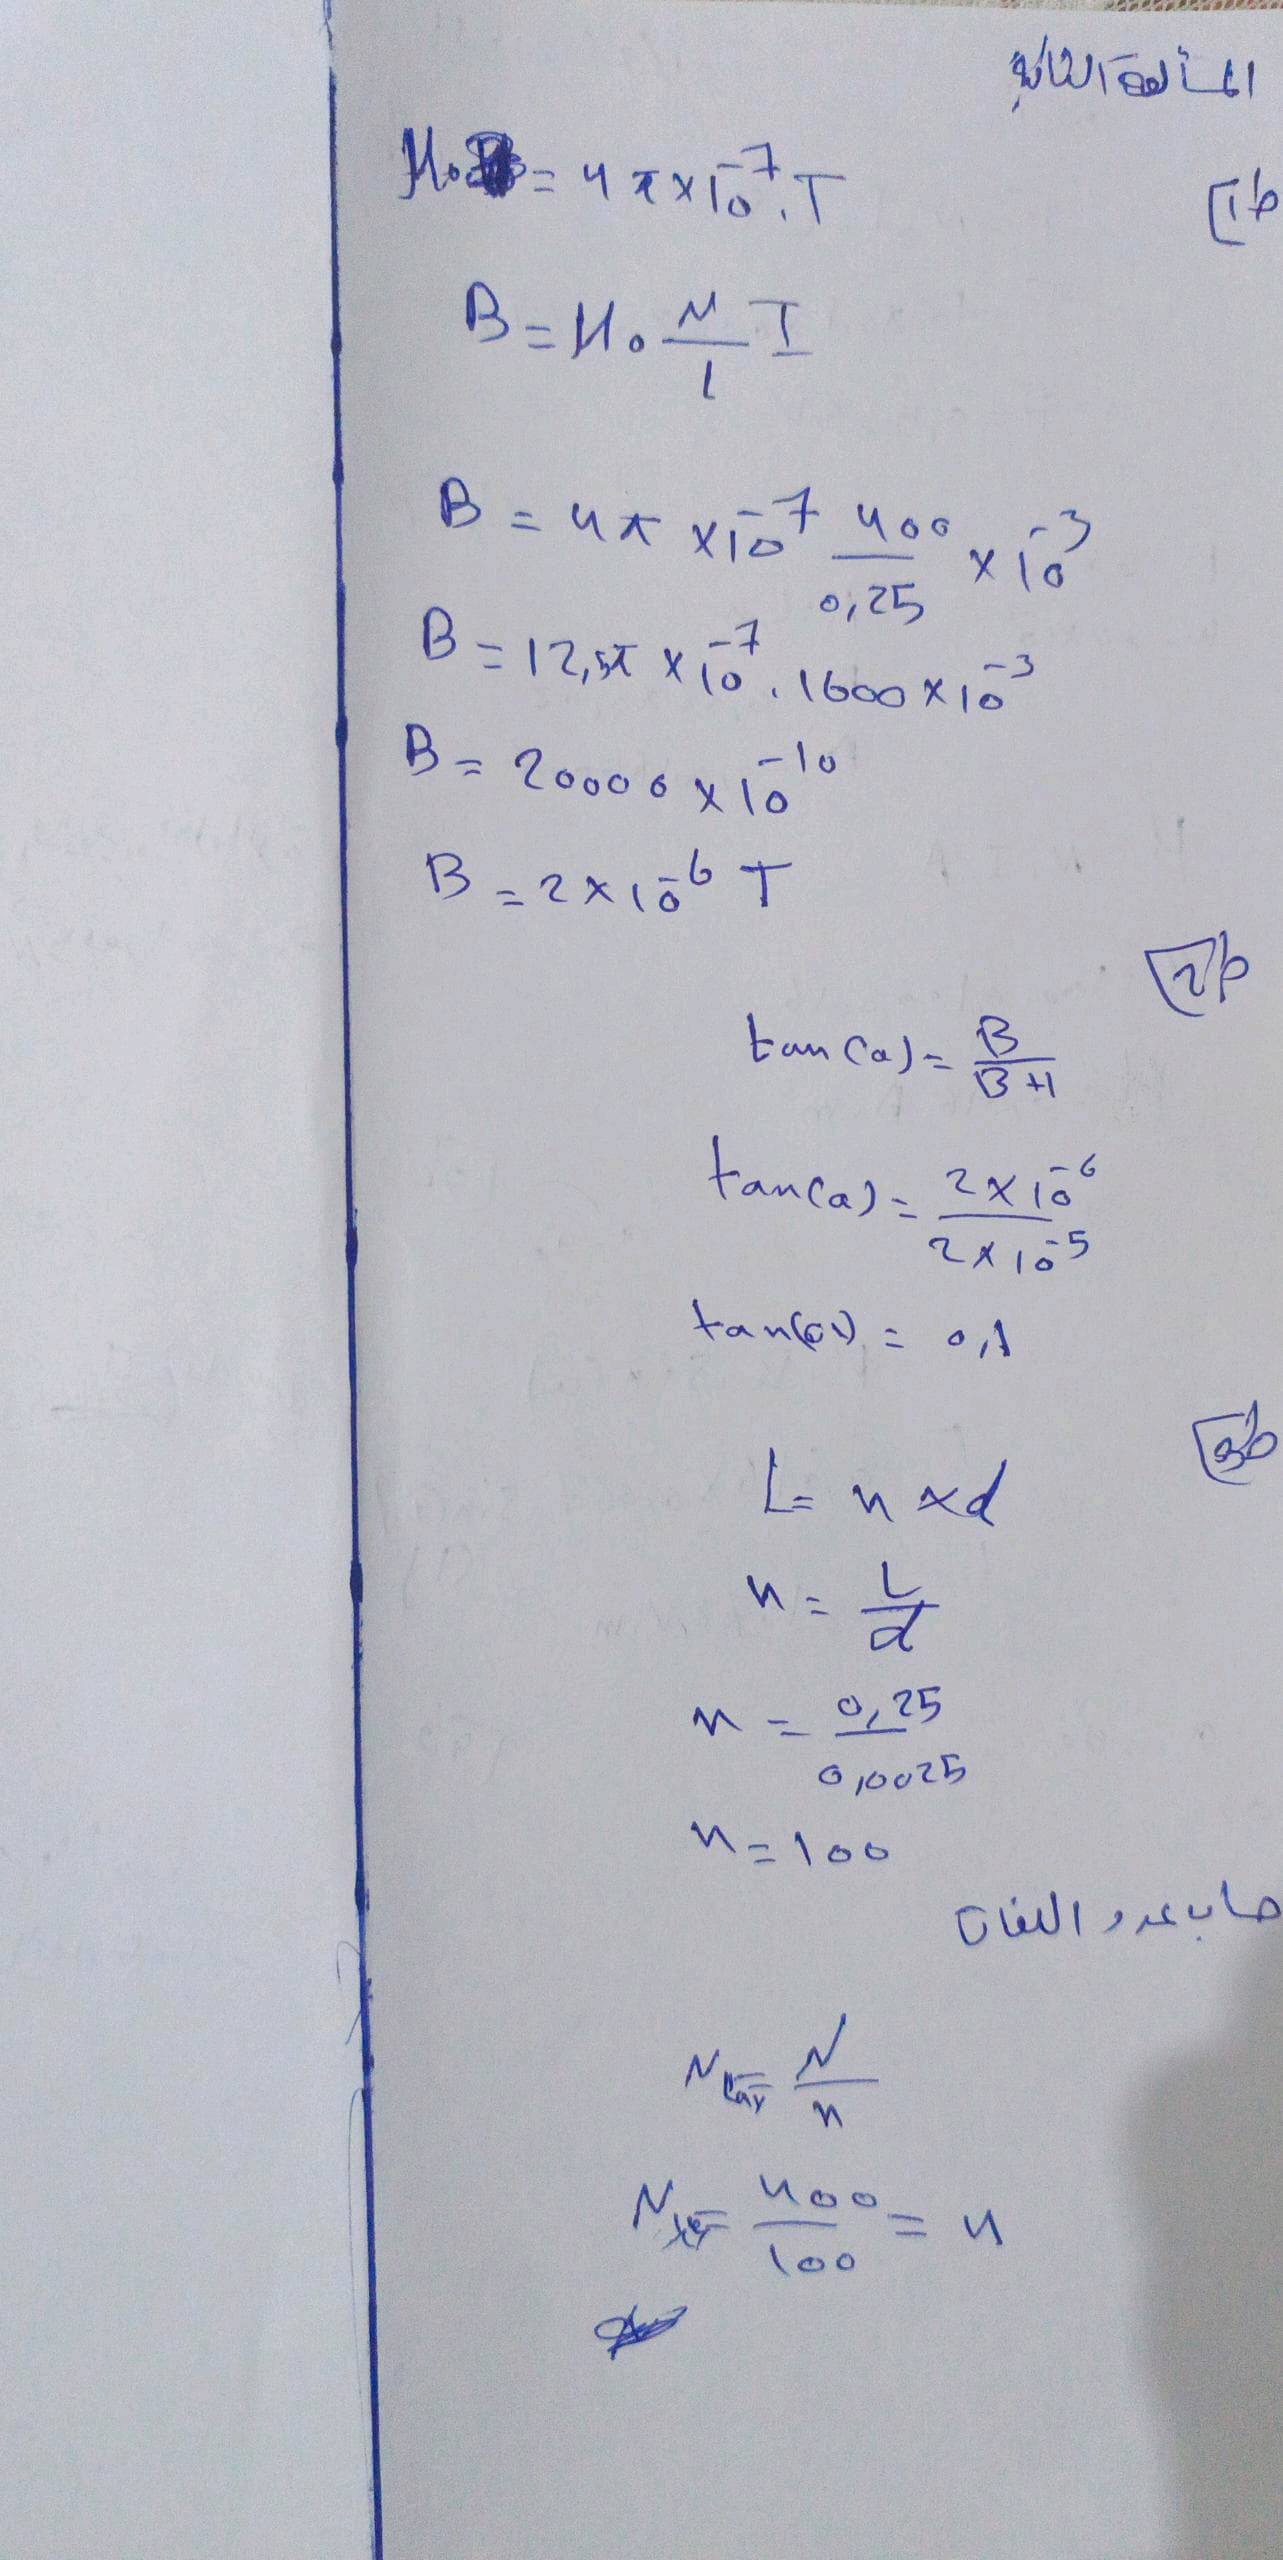 المسألة الثانية
ط1]
μ₀ = 4π×10⁻⁷.T
B = μ₀ N/l I
B = 4π ×10⁻⁷ 400/0,25 × 10⁻³
B = 12,5π × 10⁻⁷ . 1600 × 10⁻³
B = 20000 × 10⁻¹⁰
B = 2 × 10⁻⁶ T
ط2]
tan(a) = B/BH
tan(a) = 2×10⁻⁶/2×10⁻⁵
tan(a) = 0,1
ط3]
L = n × d
n = L/d
n = 0,25/0,0025
n = 100
حساب عدد اللفات
N = N/n
N = 400/100 = 4